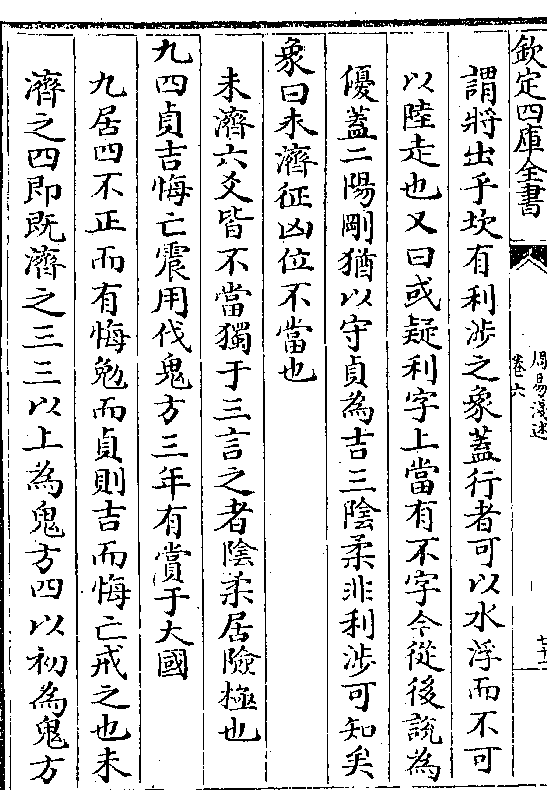 欽定四庫全書
周易淺述
卷六
七十二
謂將出乎坎有利涉之象蓋行者可以水浮而不可
以陸走也又曰或疑利字上當有不字今從後說為
優蓋二陽剛猶以守貞為吉三陰柔非利涉可知矣
象曰未濟征凶位不當也
未濟六爻皆不當獨于三言之者陰柔居險極也
九四貞吉悔亡震用伐鬼方三年有賞于大國
九居四不正而有悔勉而貞則吉而悔亡戒之也未
濟之四即既濟之三三以上為鬼方四以初為鬼方